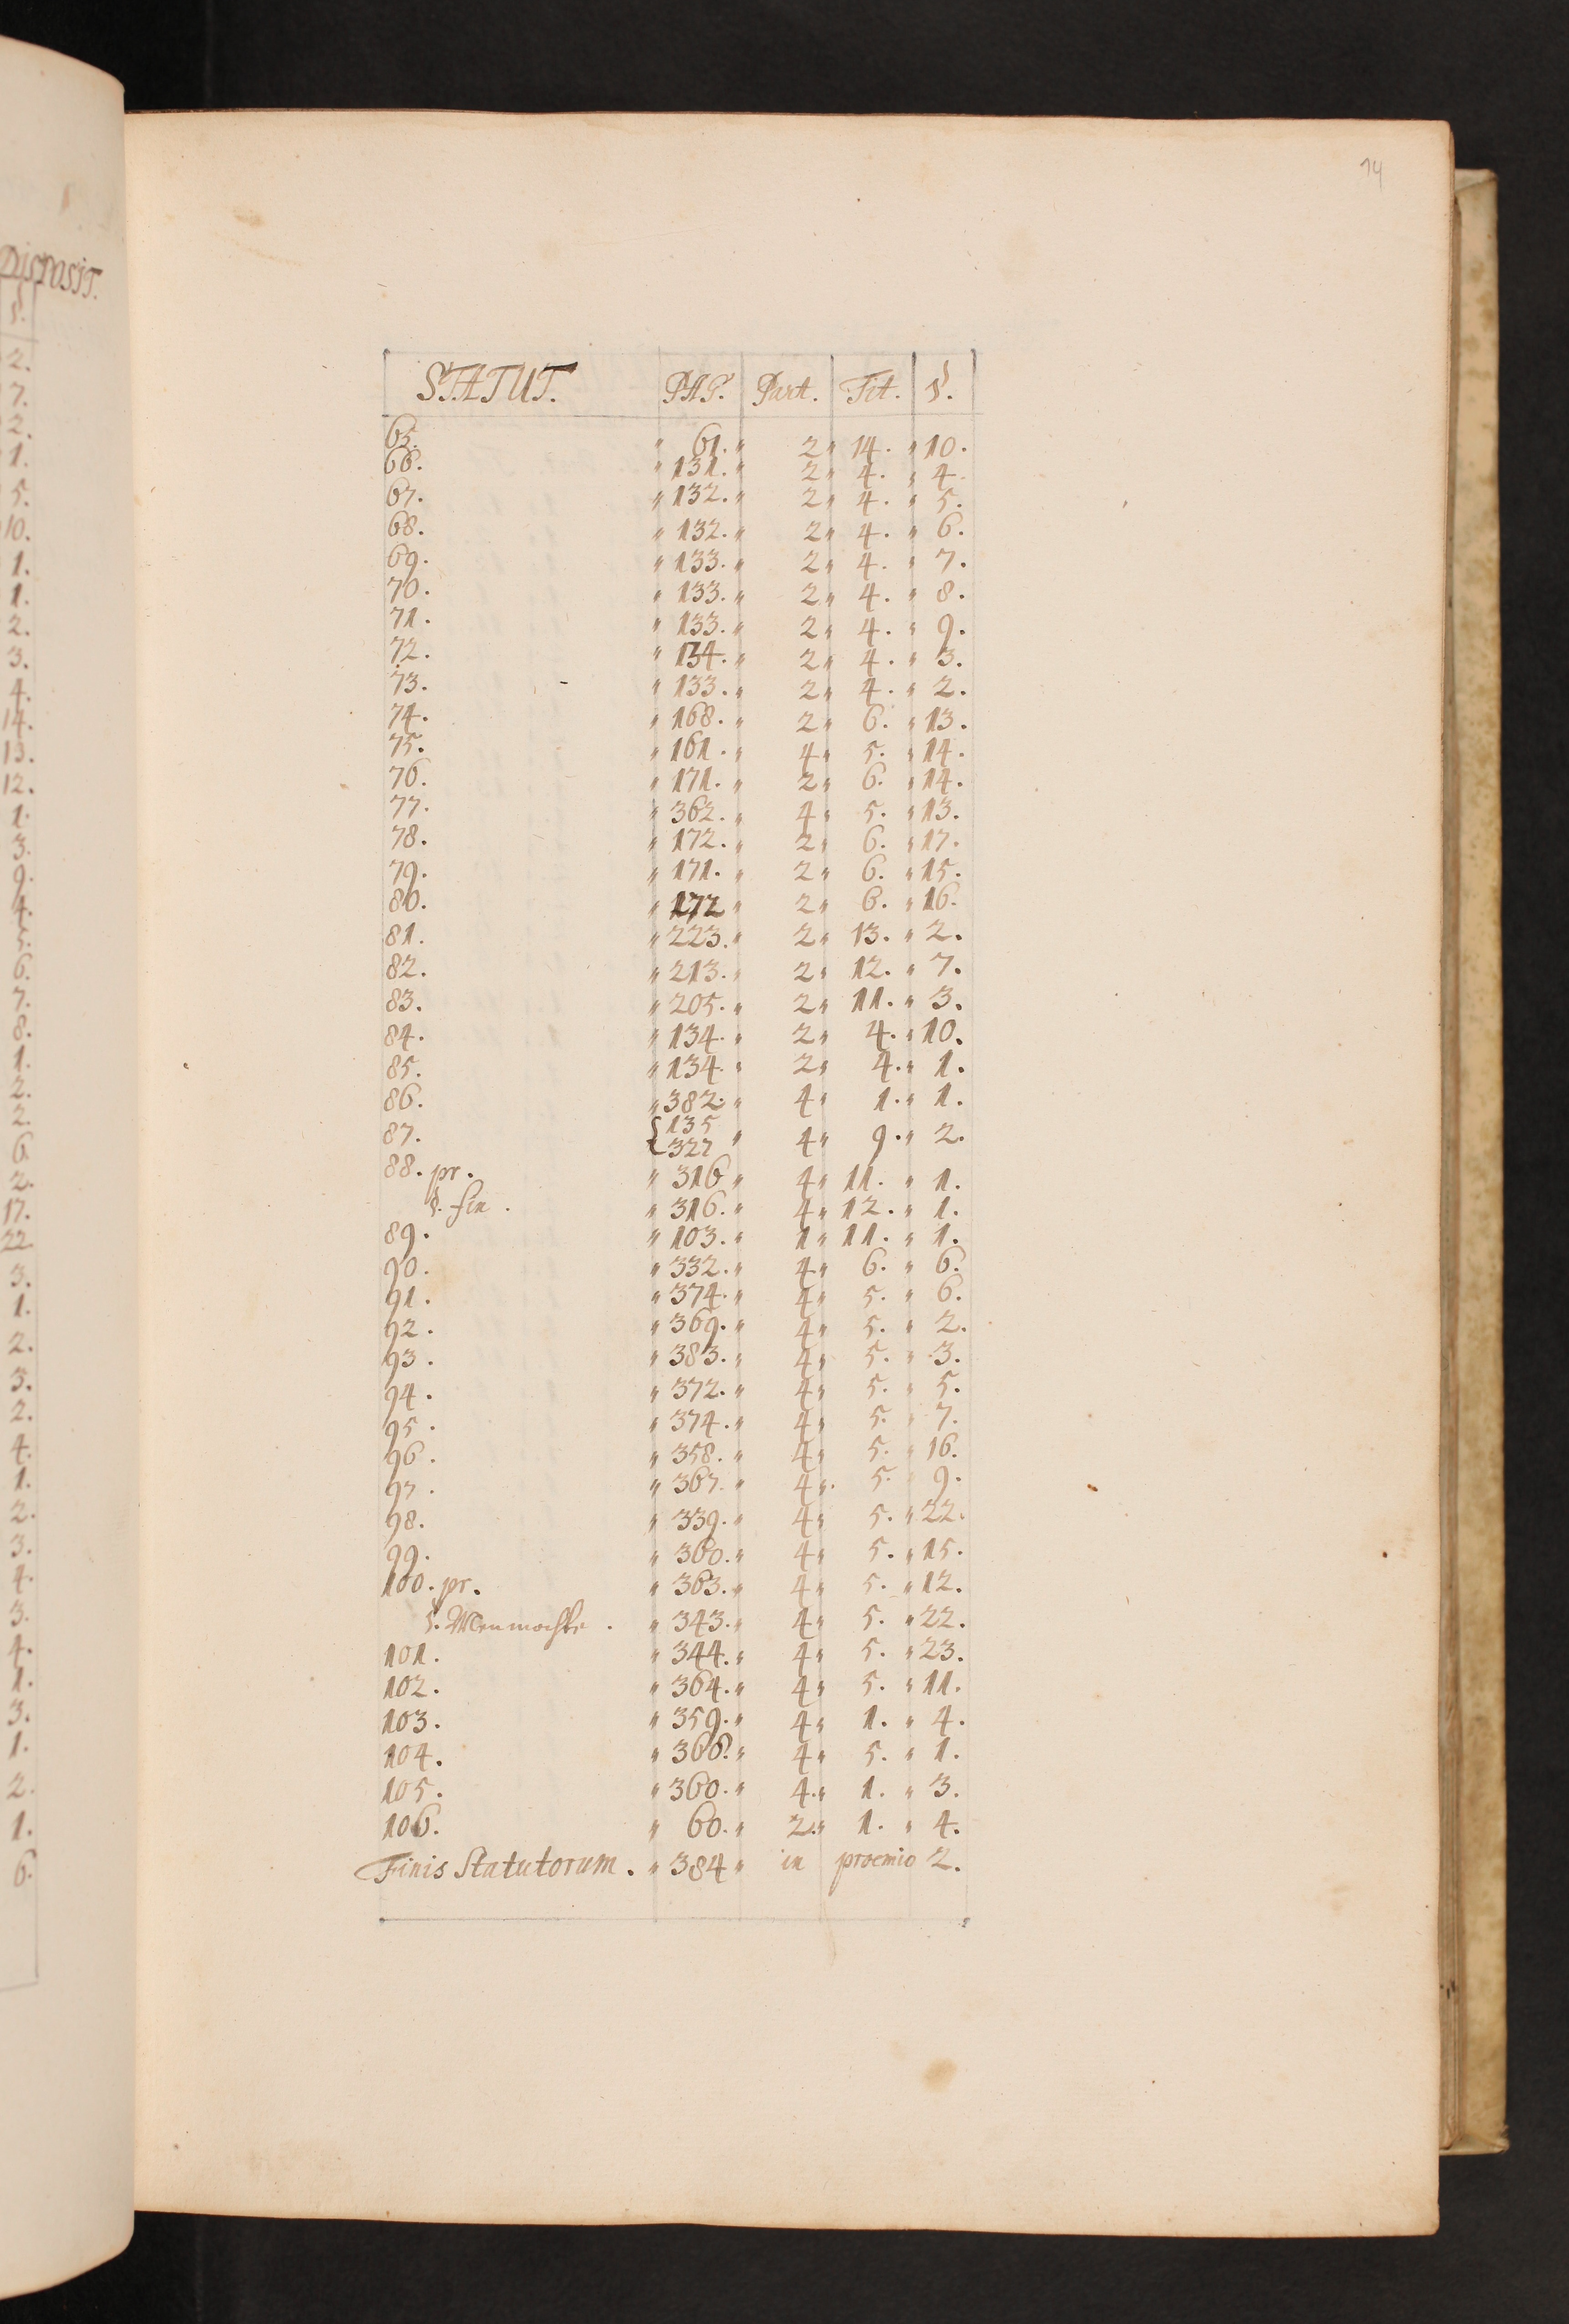 DISPOSIT.
§.
2.
7.
2.
1.
5.
10.
1.
1.
2.
3.
4.
14.
13.
12.
1.
3.
9.
4.
5.
6.
7.
8.
1.
2.
2.
6
2.
17.
22
3.
1.
2.
3.
2.
4.
1.
2.
3.
4.
3.
4.
1.
3.
1.
2.
1.
6.
14
STATUT. PAG. Part. Tit. §.
65. " 61. " 2 " 14. " 10.
66. " 131. " 2 " 4. " 4.
67. " 132. " 2 " 4. " 5.
68. " 132. " 2 " 4. " 6.
69. " 133. " 2 " 4. " 7.
70. " 133. " 2 " 4. " 8.
71. " 133. " 2 " 4. " 9.
72. " 134. " 2 " 4. " 3.
73. " 133. " 2 " 4. " 2.
74. " 168. " 2 " 6. " 13.
75. " 161. " 4 " 5. " 14.
76. " 171. " 2 " 6. " 14.
77. " 362. " 4 " 5. " 13.
78. " 172. " 2 " 6. " 17.
79. " 171. " 2 " 6. " 15.
80. " 172 " 2 " 6. " 16.
81. " 223. " 2 " 13. " 2.
82. " 213. " 2 " 12. " 7.
83. " 205. " 2 " 11. " 3.
84. " 134. " 2 " 4. " 10.
85. " 134. " 2 " 4. " 1.
86. " 382. " 4 " 1. " 1.
87. { 135 327 " 4 " 9. " 2.
88. pr. " 316 " 4 " 11. " 1.
§. fin. " 316. " 4 " 12. " 1.
89. " 103. " 1 " 11. " 1.
90. " 332. " 4 " 6. " 6.
91. " 374. " 4 " 5. " 6.
92. " 369. " 4 " 5. " 2.
93. " 383. " 4 " 5. " 3.
94. " 372. " 4 " 5. " 5.
95. " 374. " 4 " 5. " 7.
96. " 358. " 4 " 5. " 16.
97. " 367. " 4 " 5. " 9.
98. " 339. " 4 " 5. " 22.
99. " 360. " 4 " 5. " 15.
100. pr. " 363. " 4 " 5. " 12.
§. " 343. " 4 " 5. " 22.
101. " 344. " 4 " 5. " 23.
102. " 364. " 4 " 5. " 11.
103. " 359. " 4 " 1. " 4.
104. " 366. " 4 " 5. " 1.
105. " 360. " 4. " 1. " 3.
106. " 60. " 2. " 1. " 4.
Finis Statutorum. " 384 " in proemio 2.